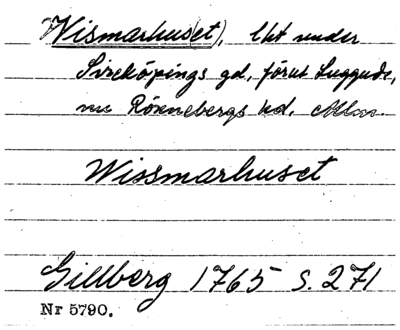 Wismarhus(et), lht under
Sireköpings gd, förut Luggude,
nu Rönnebergs hd. Mlm.
Wissmarhuset
Gillberg 1765 s. 271
Nr 5790.